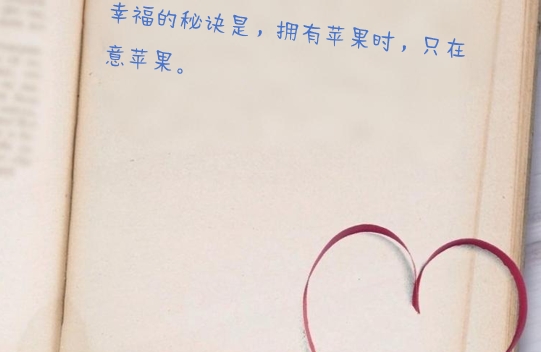 幸福的秘诀是，拥有苹果时，只在
意苹果。